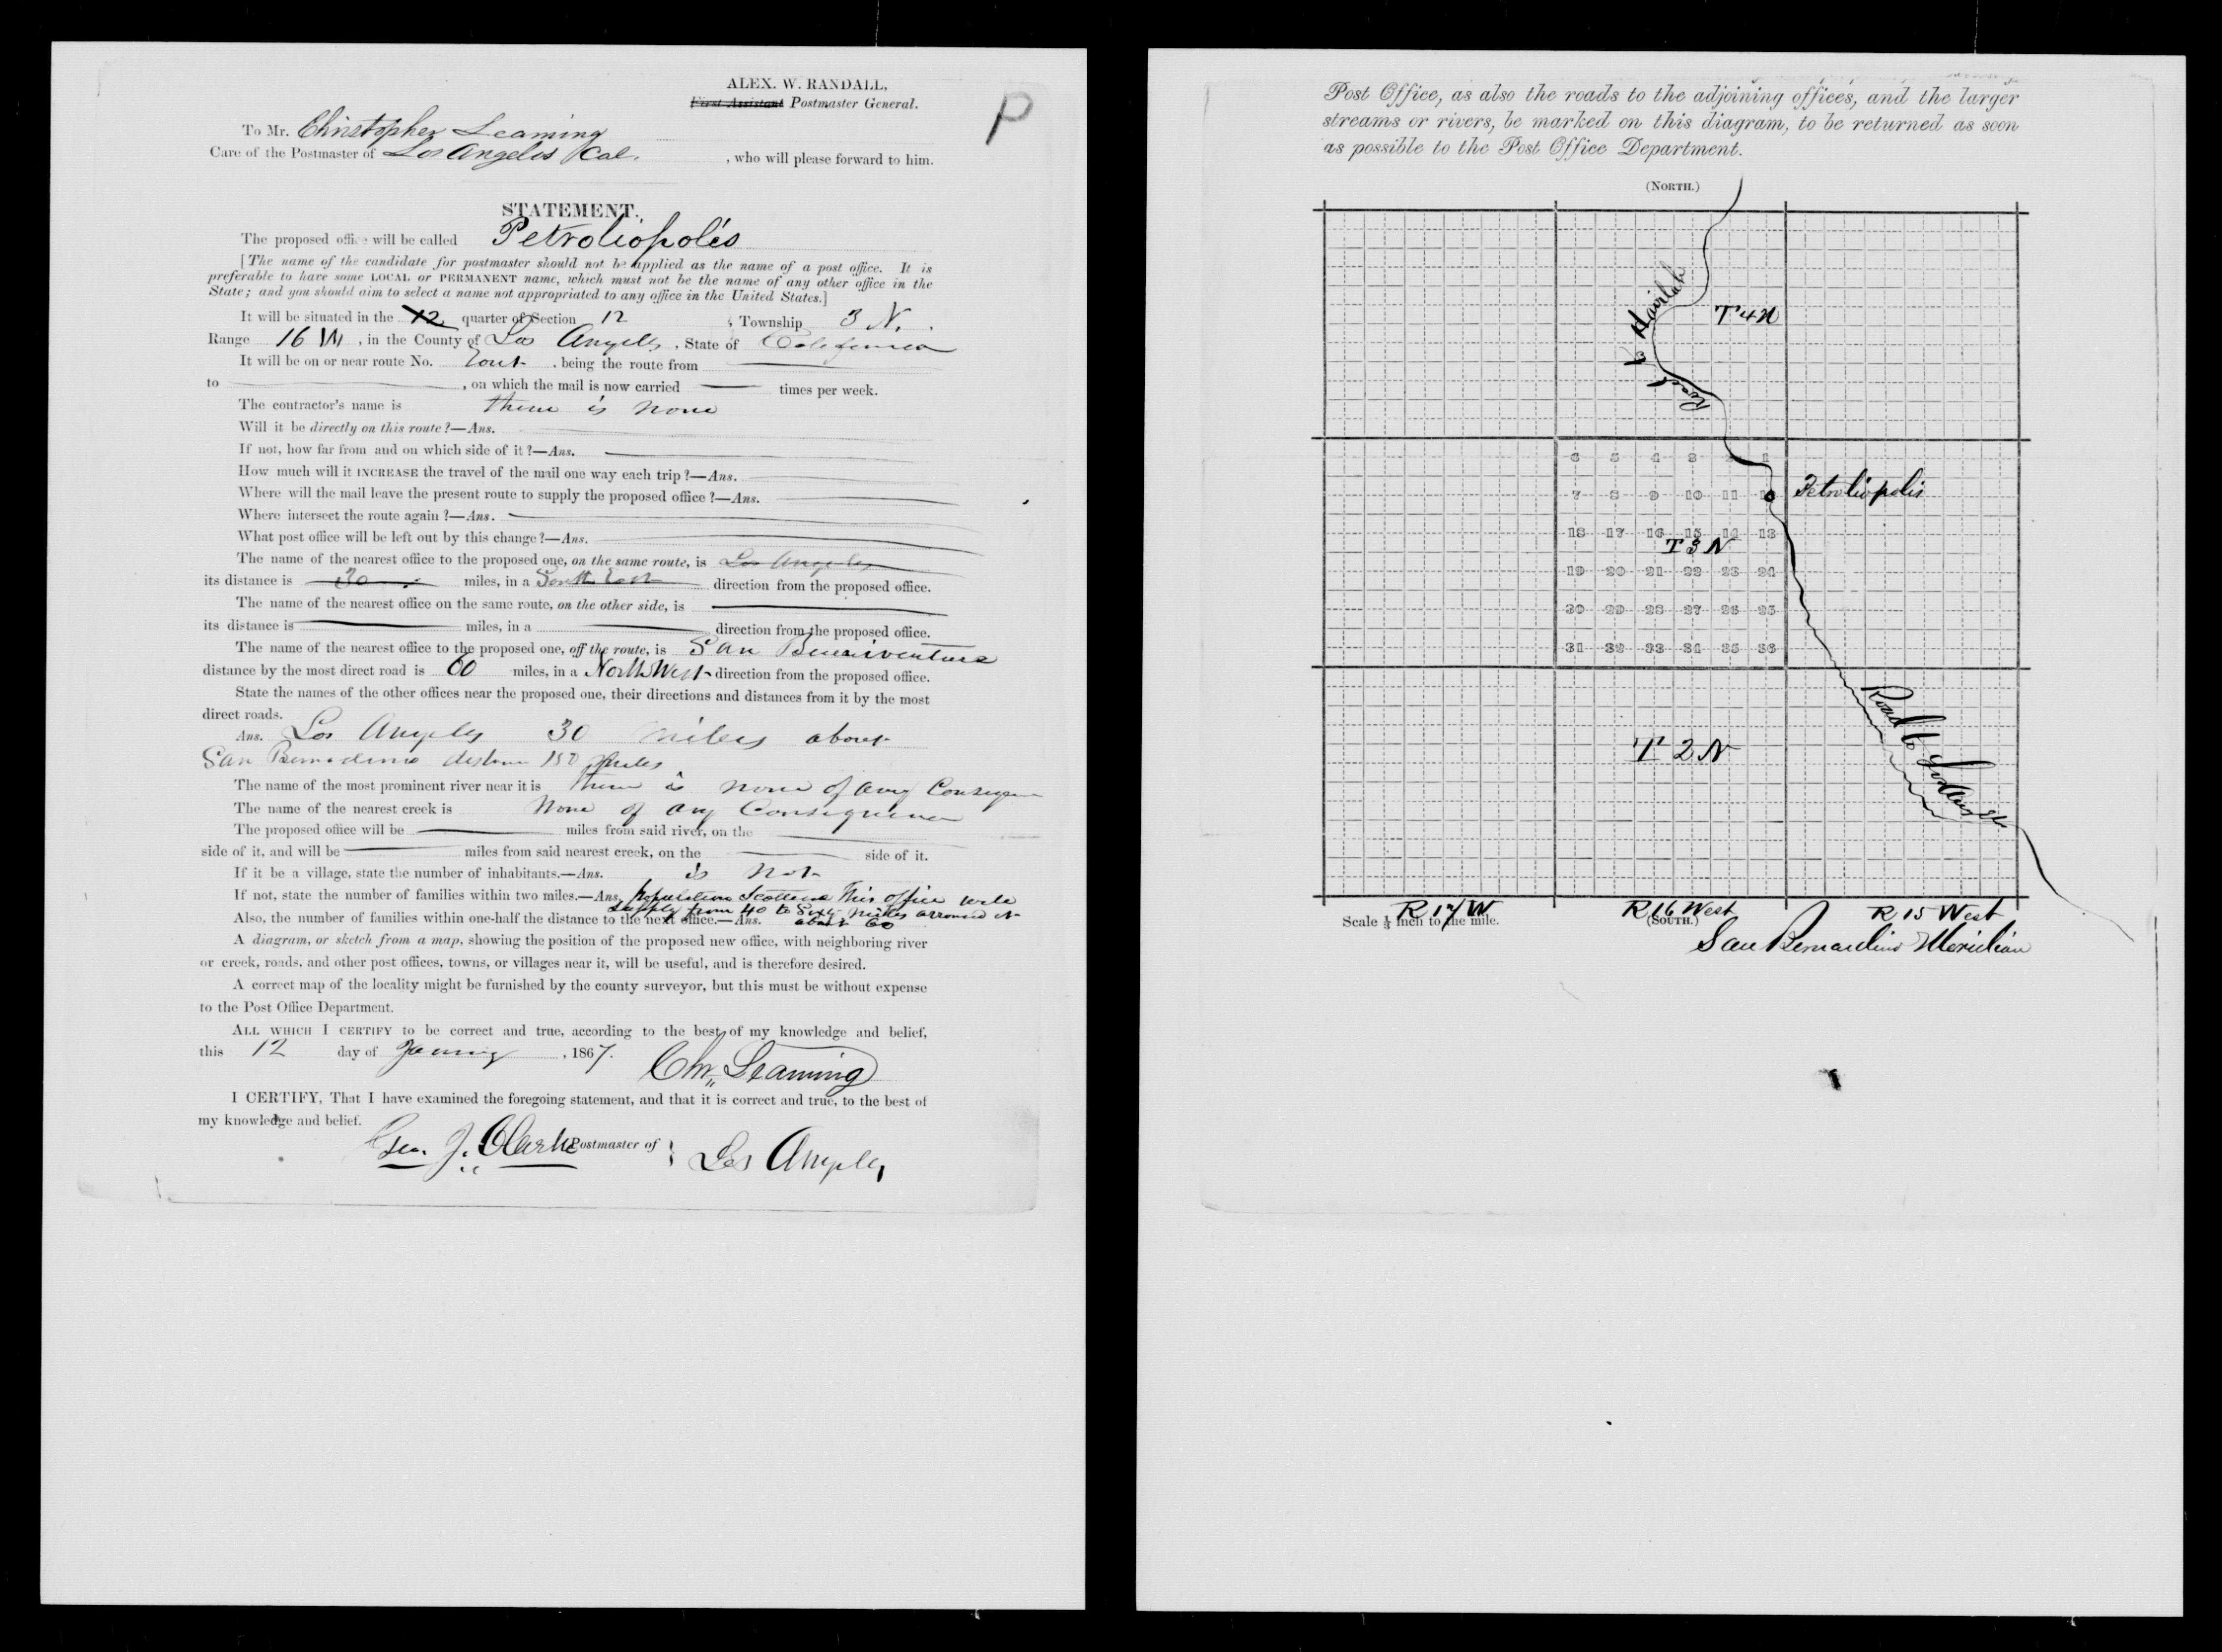 ALEX. W. RANDALL,
First Assistant Postmaster General.
P
To Mr. Christopher Leaming
Care of the Postmaster of Los Angeles Cal. , who will please forward to him.
STATEMENT.
The proposed office will be called Petroliopolis
[The name of the candidate for postmaster should not be applied as the name of a post office. It is
preferable to have some LOCAL or PERMANENT name, which must not be the name of any other office in the
State; and you should aim to select a name not appropriated to any office in the United States.]
It will be situated in the 12 quarter of Section 12 , Township 3 N. .
Range 16 W , in the County of Los Angeles , State of California
It will be on or near route No. , being the route from
to , on which the mail is now carried times per week.
The contractor's name is there is none
Will it be directly on this route?—Ans.
If not, how far from and on which side of it?—Ans.
How much will it INCREASE the travel of the mail one way each trip?—Ans.
Where will the mail leave the present route to supply the proposed office?—Ans.
Where intersect the route again?—Ans.
What post office will be left out by this change?—Ans.
The name of the nearest office to the proposed one, on the same route, is Los Angeles
its distance is 30 miles, in a South East direction from the proposed office.
The name of the nearest office on the same route, on the other side, is
its distance is miles, in a direction from the proposed office.
The name of the nearest office to the proposed one, off the route, is San Buenaventura
distance by the most direct road is 60 miles, in a North West direction from the proposed office.
State the names of the other offices near the proposed one, their directions and distances from it by the most
direct roads.
Ans. Los Angeles 30 miles about
San Bernadino distance 150 Miles
The name of the most prominent river near it is there is none of any Consequen
The name of the nearest creek is None of any Consequence
The proposed office will be miles from said river, on the
side of it, and will be miles from said nearest creek, on the side of it.
If it be a village, state the number of inhabitants.—Ans. is not
If not, state the number of families within two miles.—Ans. Population Scattered This office will
supply from 40 to Sixty miles arround it
Also, the number of families within one-half the distance to the next office.—Ans. about 60
A diagram, or sketch from a map, showing the position of the proposed new office, with neighboring river
or creek, roads, and other post offices, towns, or villages near it, will be useful, and is therefore desired.
A correct map of the locality might be furnished by the county surveyor, but this must be without expense
to the Post Office Department.
ALL WHICH I CERTIFY to be correct and true, according to the best of my knowledge and belief,
this 12 day of January , 1867.
Chr. Leaming
I CERTIFY, That I have examined the foregoing statement, and that it is correct and true, to the best of
my knowledge and belief.
Geo. J. Clarke Postmaster of Los Angeles
Post Office, as also the roads to the adjoining offices, and the larger
streams or rivers, be marked on this diagram, to be returned as soon
as possible to the Post Office Department.
(NORTH.)
Road to
T 4 N
6 5 4 3 1
Petroliopolis
7 8 9 10 11
18 17 16 15 14 13
T 3 N
19 20 21 22 23 24
30 29 28 27 26 25
31 32 33 34 35 36
Road to Los Angeles
T 2 N
R 17 W R 16 West R 15 West
Scale ⅓ inch to the mile. (SOUTH.)
San Bernardino Meridian